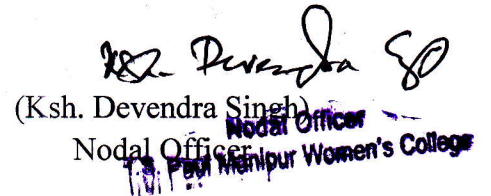 Ksh. Devendra Sgh
(Ksh. Devendra Singh)
Nodal Officer
Nodal Officer
T.S. Paul Manipur Women's College